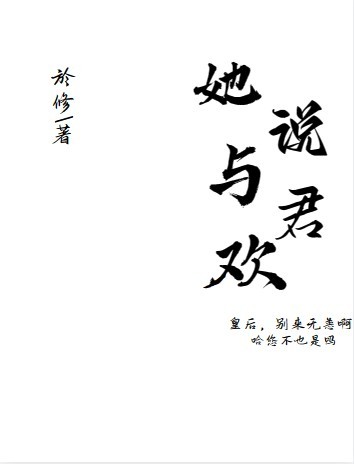 她说与君欢
於修/著
皇后，别来无恙啊
哈您不也是吗